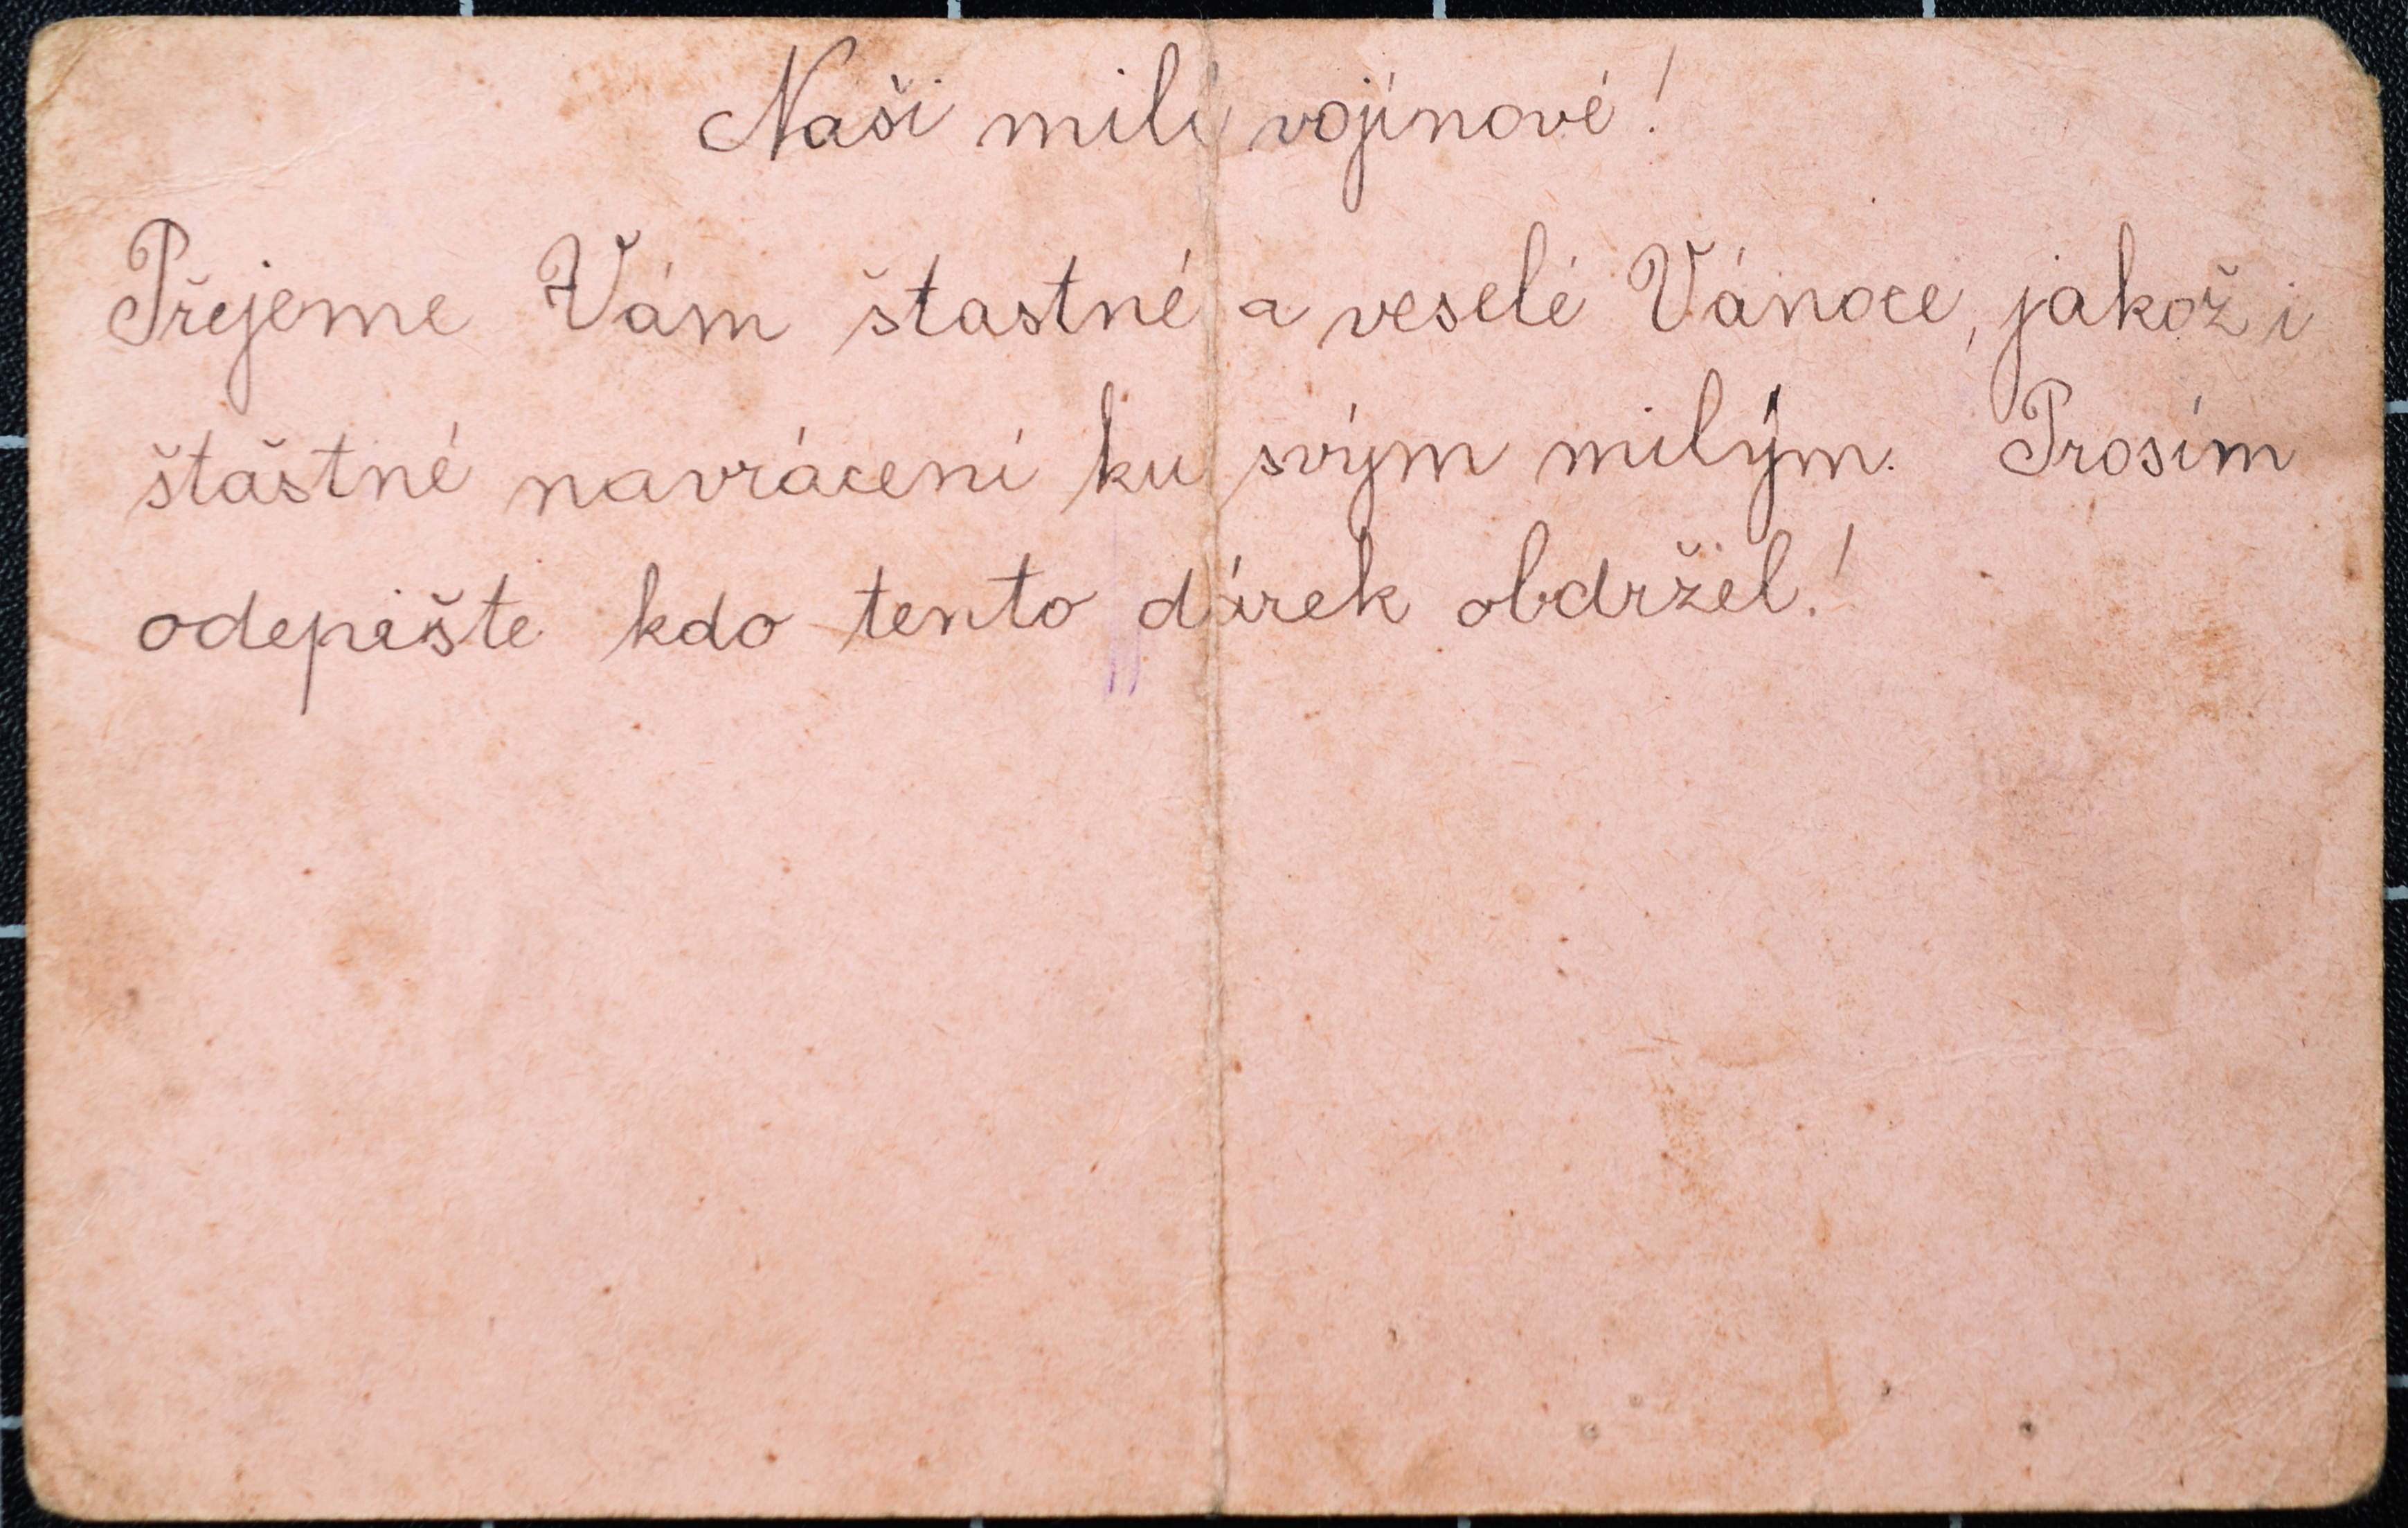 Naši milí vojínové!
Přejeme Vám štastné a veselé Vánoce, jakož i
štaštné navrácení ku svým milým. Prosím
odepište kdo tento dárek obdržel!